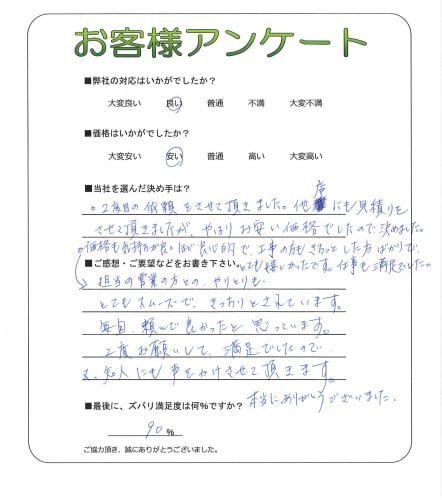 お客様アンケート
■弊社の対応はいかがでしたか？
大変良い 良い 普通 不満 大変不満
■価格はいかがでしたか？
大変安い 安い 普通 高い 大変高い
■当社を選んだ決め手は？
。2度目の依頼をさせて頂きました。他店にも見積りを
させて頂きましたが、やはりお安い価格でしたので決めました。
。価格も気持ちが良いほど良心的で、工事の方もきちっとした方ばかりで、
■ご感想・ご要望などをお書き下さい。
とても嬉しかったです。仕事も満足でした。
担当の営業の方とのやりとりも、
とてもスムーズで、きっちりとされています。
毎回、頼んで良かったと思っています。
2度お願いして、満足でしたので
又、知人にも声をかけさせて頂きます。
本当にありがとうございました。
■最後に、ズバリ満足度は何％ですか？
90％
ご協力頂き、誠にありがとうございました。